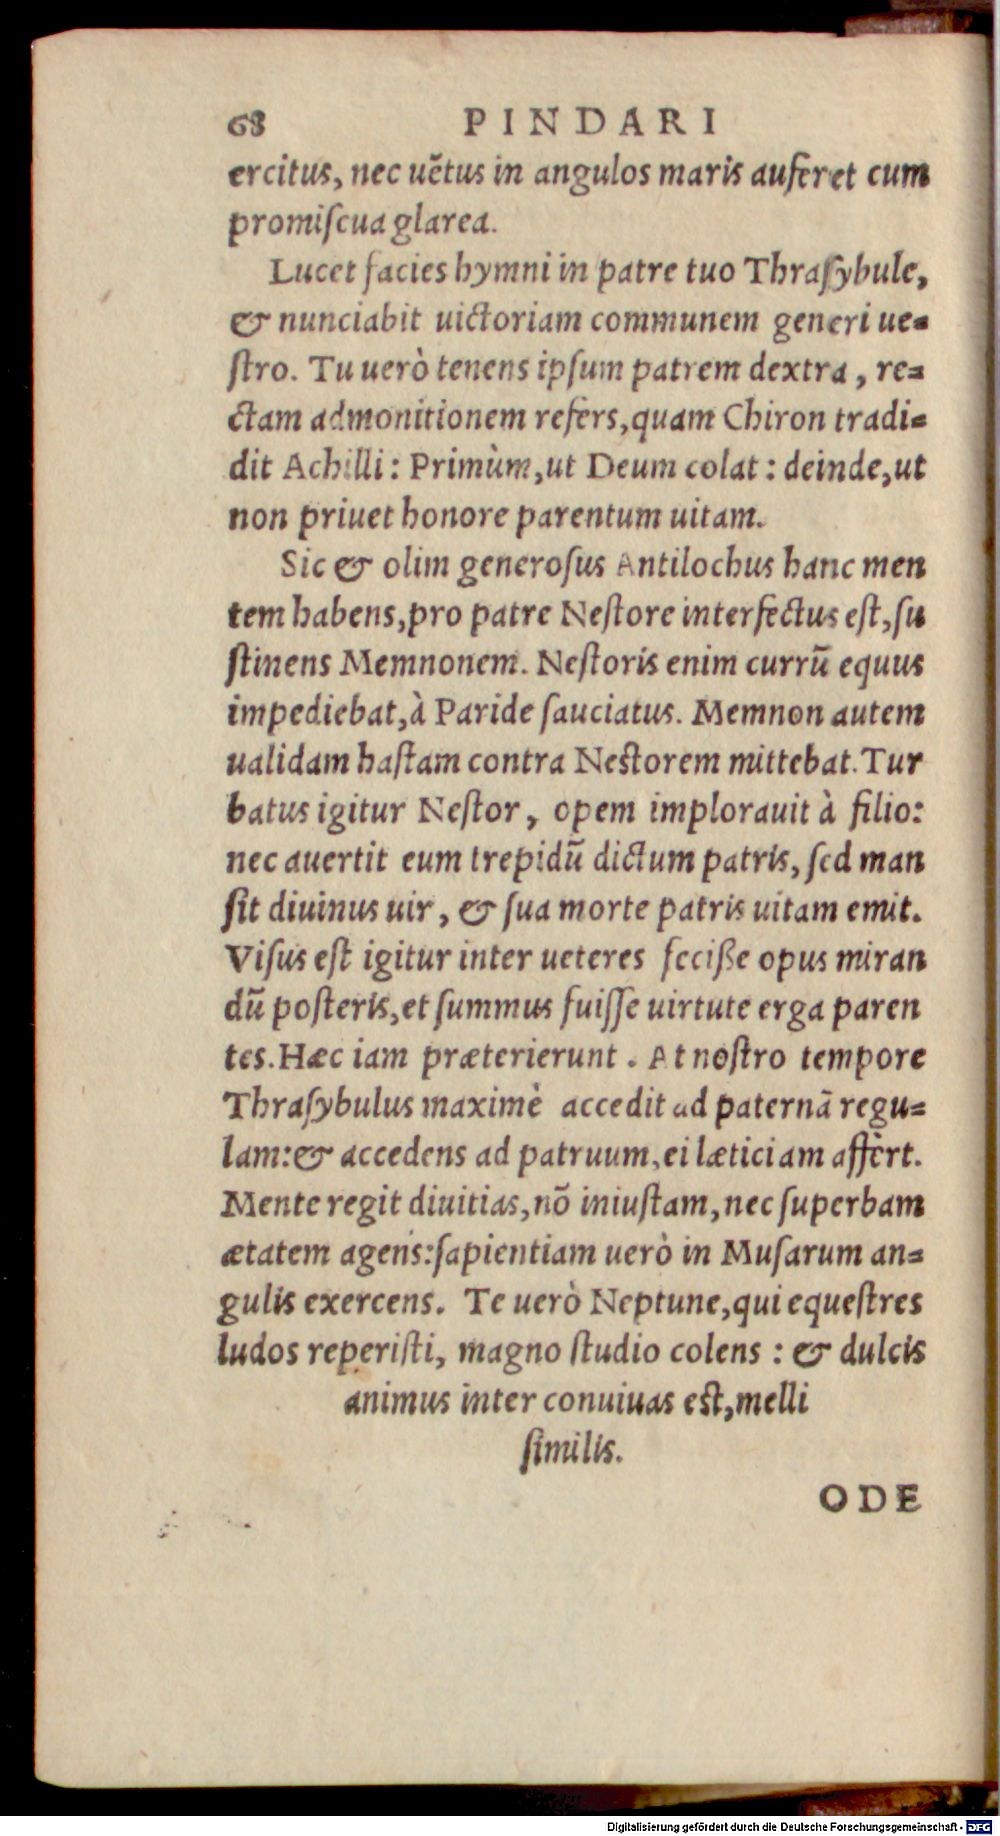 68 PINDARI
ercitus, nec uẽtus in angulos maris auferet cum
promiſcua glarea.
Lucet facies hymni in patre tuo Thraſybule,
& nunciabit uictoriam communem generi ue-
ſtro. Tu uerò tenens ipſum patrem dextra, re-
ctam admonitionem refers, quam Chiron tradi-
dit Achilli: Primùm, ut Deum colat: deinde, ut
non priuet honore parentum uitam.
Sic & olim generoſus Antilochus hanc men
tem habens, pro patre Neſtore interfectus eſt, ſu
ſtinens Memnonem. Neſtoris enim currũ equus
impediebat, à Paride ſauciatus. Memnon autem
ualidam haſtam contra Neſtorem mittebat. Tur
batus igitur Neſtor, opem implorauit à filio:
nec auertit eum trepidũ dictum patris, ſed man
ſit diuinus uir, & ſua morte patris uitam emit.
Viſus eſt igitur inter ueteres feciße opus miran
dũ poſteris, et ſummus fuiſſe uirtute erga paren
tes. Hæc iam præterierunt. At noſtro tempore
Thraſybulus maximè accedit ad paternã regu-
lam: & accedens ad patruum, ei læticiam affèrt.
Mente regit diuitias, nõ iniuſtam, nec ſuperbam
ætatem agens: ſapientiam uerò in Muſarum an-
gulis exercens. Te uerò Neptune, qui equeſtres
ludos reperiſti, magno ſtudio colens: & dulcis
animus inter conuiuas eſt, melli
ſimilis.
ODE
Digitalisierung gefördert durch die Deutsche Forschungsgemeinschaft - DFG